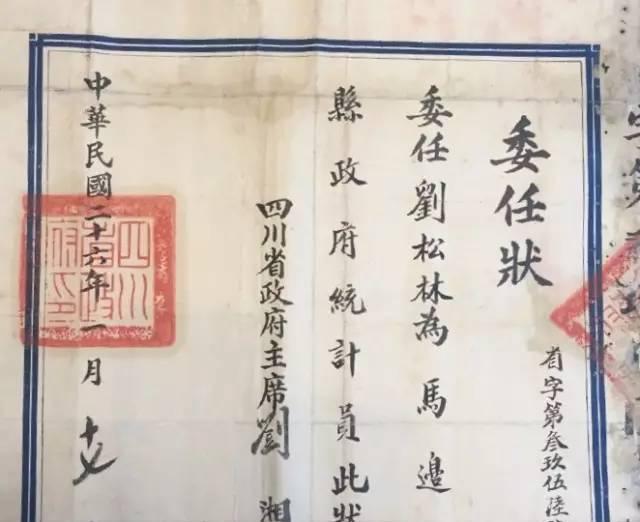 委任狀
省字第叄玖伍陸
委任劉松林為馬邊
縣政府統計員此狀
四川省政府主席劉湘
中華民國二十六年一月十七
四川
省政
府印